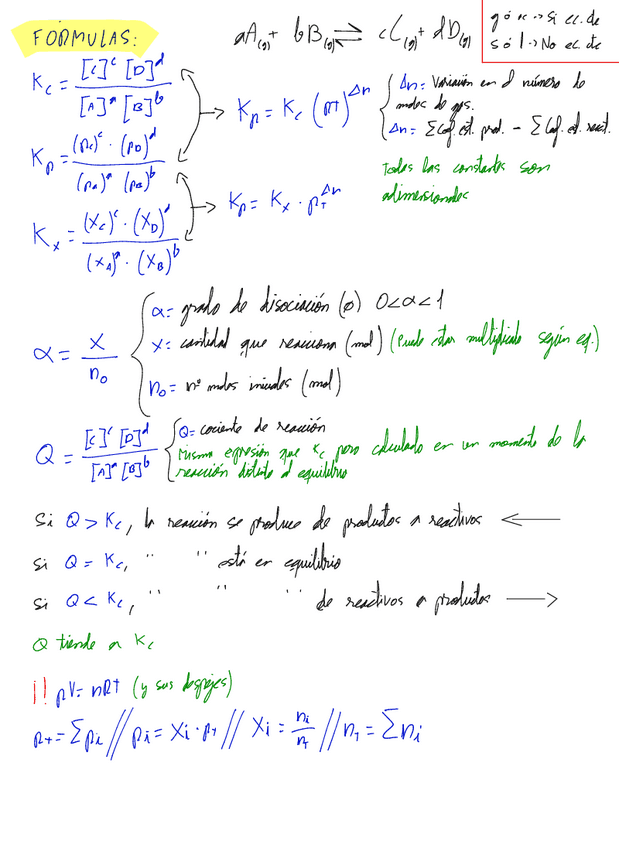 FORMULAS:
aA(g) + bB(g) ⇌ cC(g) + dD(g)
g ó ac -> Si ec. de
s ó l -> No ec. de
Kc = [C]^c [D]^d / [A]^a [B]^b
Kp = (pC)^c · (pD)^d / (pA)^a (pB)^b
Kx = (XC)^c · (XD)^d / (XA)^a · (XB)^b
Kp = Kc (RT)^Δn
Δn = Variación en el número de
moles de gas.
Δn = Σ Coef. est. prod. - Σ Coef. est. react.
Kp = Kx · pT^Δn
Todas las constantes son
adimensionales
α = x / n0
α = grado de disociación (ø) 0<α<1
x = cantidad que reacciona (mol) (Puede estar multiplicado según eq.)
n0 = nº moles iniciales (mol)
Q = [C]^c [D]^d / [A]^a [B]^b
Q = cociente de reacción
Misma expresión que Kc pero calculado en un momento de la
reacción distinto al equilibrio
Si Q > Kc, la reacción se produce de productos a reactivos ←
si Q = Kc, " " está en equilibrio
si Q < Kc, " " " de reactivos a productos →
Q tiende a Kc
!! pV = nRT (y sus despejes)
pT = Σ pi // pi = Xi · pT // Xi = ni / nT // nT = Σ ni